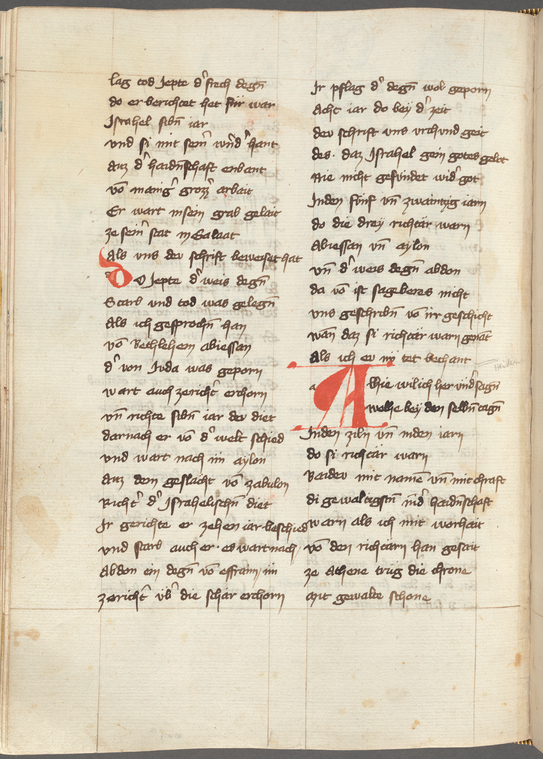 lag tod Jepte dˀ frech degn̄
do er berichtet het fúr war
Jsrahel sibn̄ iar
vnd si mit sein̄ wn̄dˀ hant
auz dˀ haidn̄schaft enbant
vō manigˀ grozzˀ arbait
Er wart in sein grab geleit
ze sein̄ stat in Galaat
Als vns dev schrift beweiset hat
Do Jepte dˀ weis degn̄
Starb vnd tod was gelegn̄
Als ich gesprochn̄ han
vō Bethlehem abiessan
dˀ von Juda was geporn
wart auch zerichtˀ erchorn
vn̄ richte sibn̄ iar der diet
darnach er vō dˀ welt schied
vnd wart nach im aylon
auz dem geslacht vō zabulon
Richtˀ dˀ Jsrahelischn̄ diet
Jr gerichte er zehen iar beschied
vnd starb auch er · es wart nach
Abdon ein degn̄ vō effraim im
zerichtˀ vbˀ die schar erchorn
Jr pflag dˀ degn̄ wol geporn
Acht iar do bey dˀ zeit
dev schrift vns vrchund geit
des · daz Jsrahel gein gotes gebot
Nie nicht gesundet widˀ got
Jnden fúnf vn̄ zwaintzig iarn
do die drey richtàr warn
Abiessan vn̄ aylon
vn̄ dˀ weis degn̄ abdon
da vō ist sagberes nicht
vns geschribn̄ vō irr geschicht
wan daz si richtàr warn genāt
Als ich ev iij tet bechant
Nv wil ich her vnd sagn
welhe bey den selbn̄ tagn̄
Jnden ziln vn̄ inden iarn
do si richtàr warn
Baider mit namē vn̄ mit chraft
di gewaltigstn̄ in dˀ haidn̄schaft
warn als ich mit worhait
vō den richtàrn han geseit
ze Athene trúg die chrone
mit gewalte schone